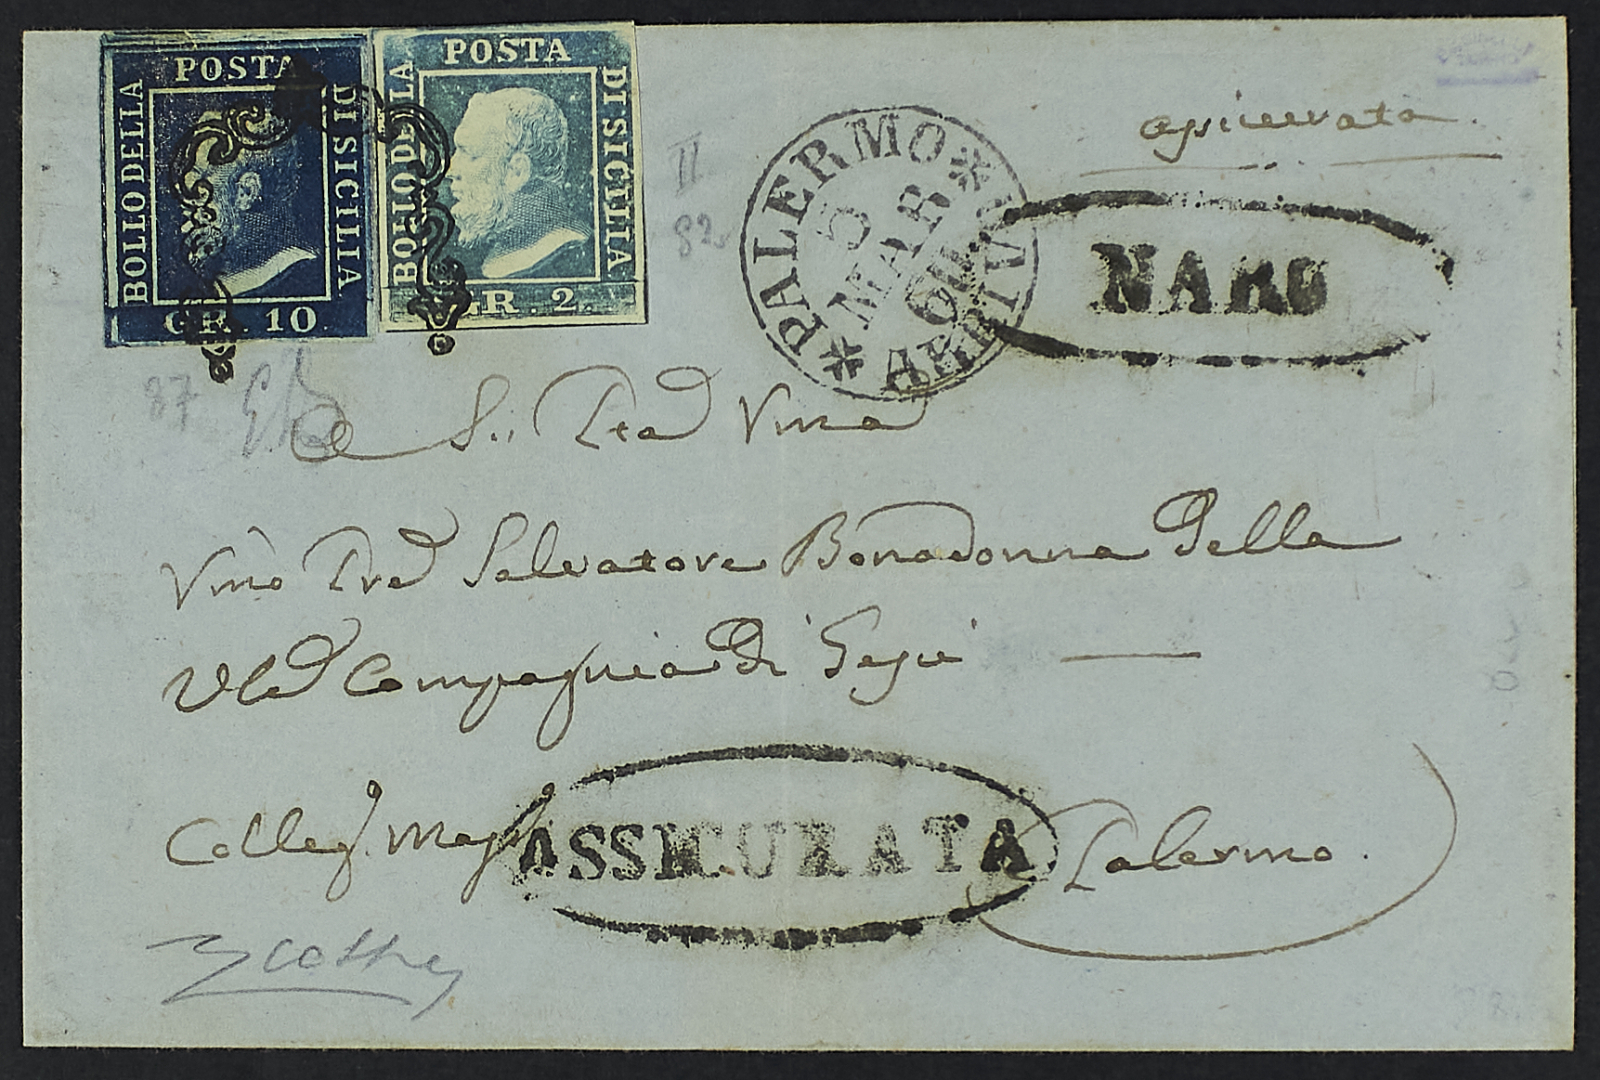 POSTA
BOLLO DELLA
DI SICILIA
GR. 10
POSTA
BOLLO DELLA
DI SICILIA
GR. 2.
II
82
PALERMO
ARRIVO
5
MAR
60
assicurata
NARO
87
Salvatore Bonadonna Della
Compagnia Di Gesù
Colleg. Mass.
ASSICURATA
Palermo.